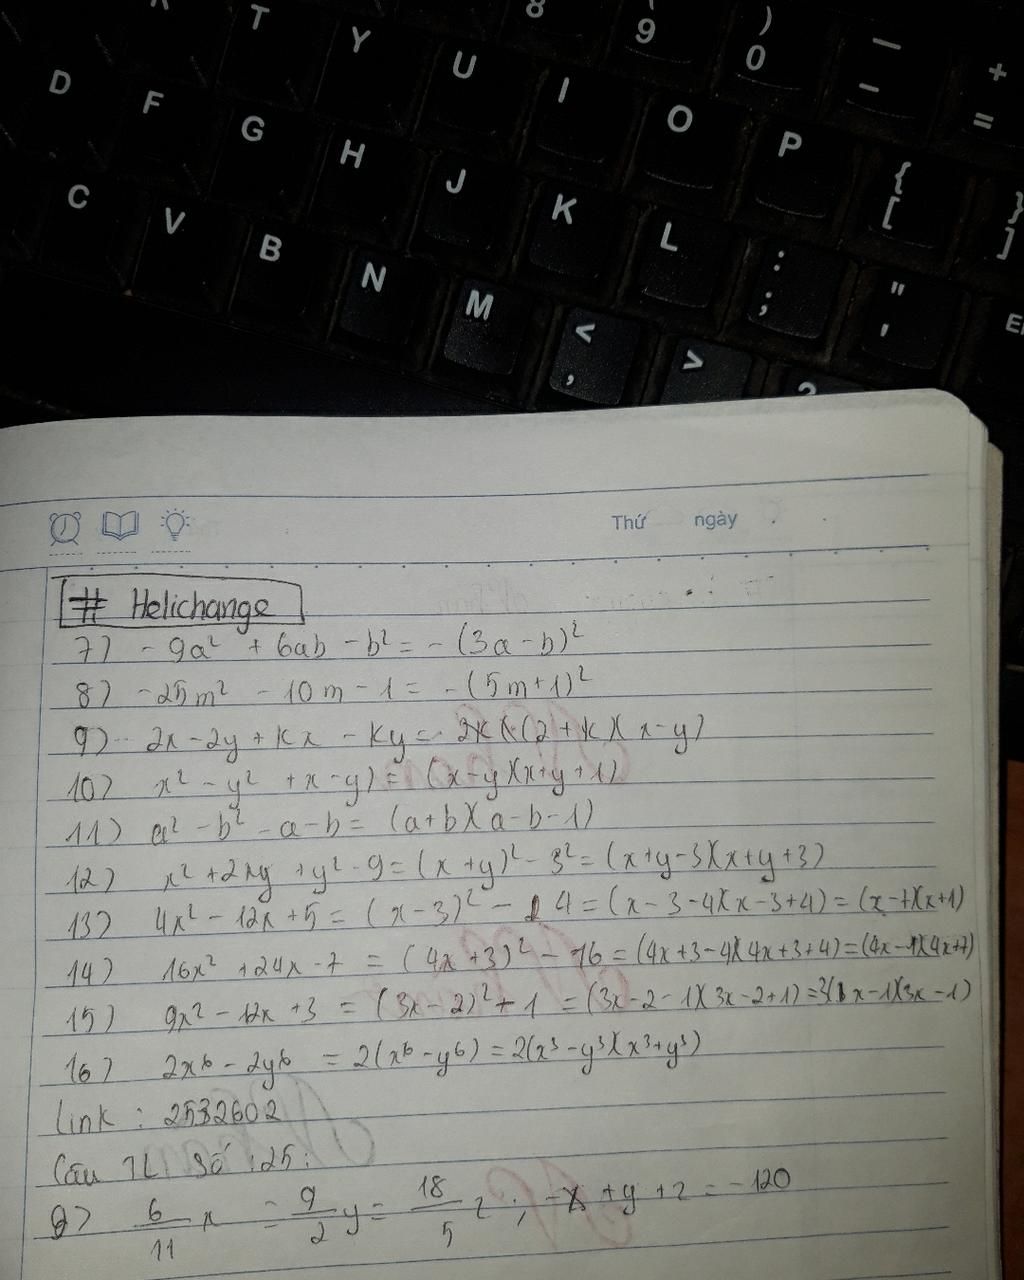 8 9 ( 0 ) _ - + =
T Y U I O P { [ } ]
D F G H J K L : ; " '
C V B N M < , > ?
Thứ ngày
# Helichange
7) -9a² + 6ab - b² = -(3a-b)²
8) -25m² - 10m - 1 = -(5m+1)²
9) 2x-2y+kx-ky = (2+k)(x-y)
10) x² - y² + x - y) = (x-y)(x+y+1)
11) a² - b² - a - b = (a+b)(a-b-1)
12) x² + 2xy + y² - 9 = (x+y)² - 3² = (x+y-3)(x+y+3)
13) 4x² - 12x + 5 = (x-3)² - 4 = (x-3-4)(x-3+4) = (x-7)(x+1)
14) 16x² + 24x - 7 = (4x+3)² - 16 = (4x+3-4)(4x+3+4) = (4x-1)(4x+7)
15) 9x² - 12x + 3 = (3x-2)² - 1 = (3x-2-1)(3x-2+1) = 3(x-1)(3x-1)
16) 2x⁶ - 2y⁶ = 2(x⁶-y⁶) = 2(x³-y³)(x³+y³)
link : 2532602
Câu TL Số :25:
6/11 x = 9/2 y = 18/5 z ; -x + y + z = -120